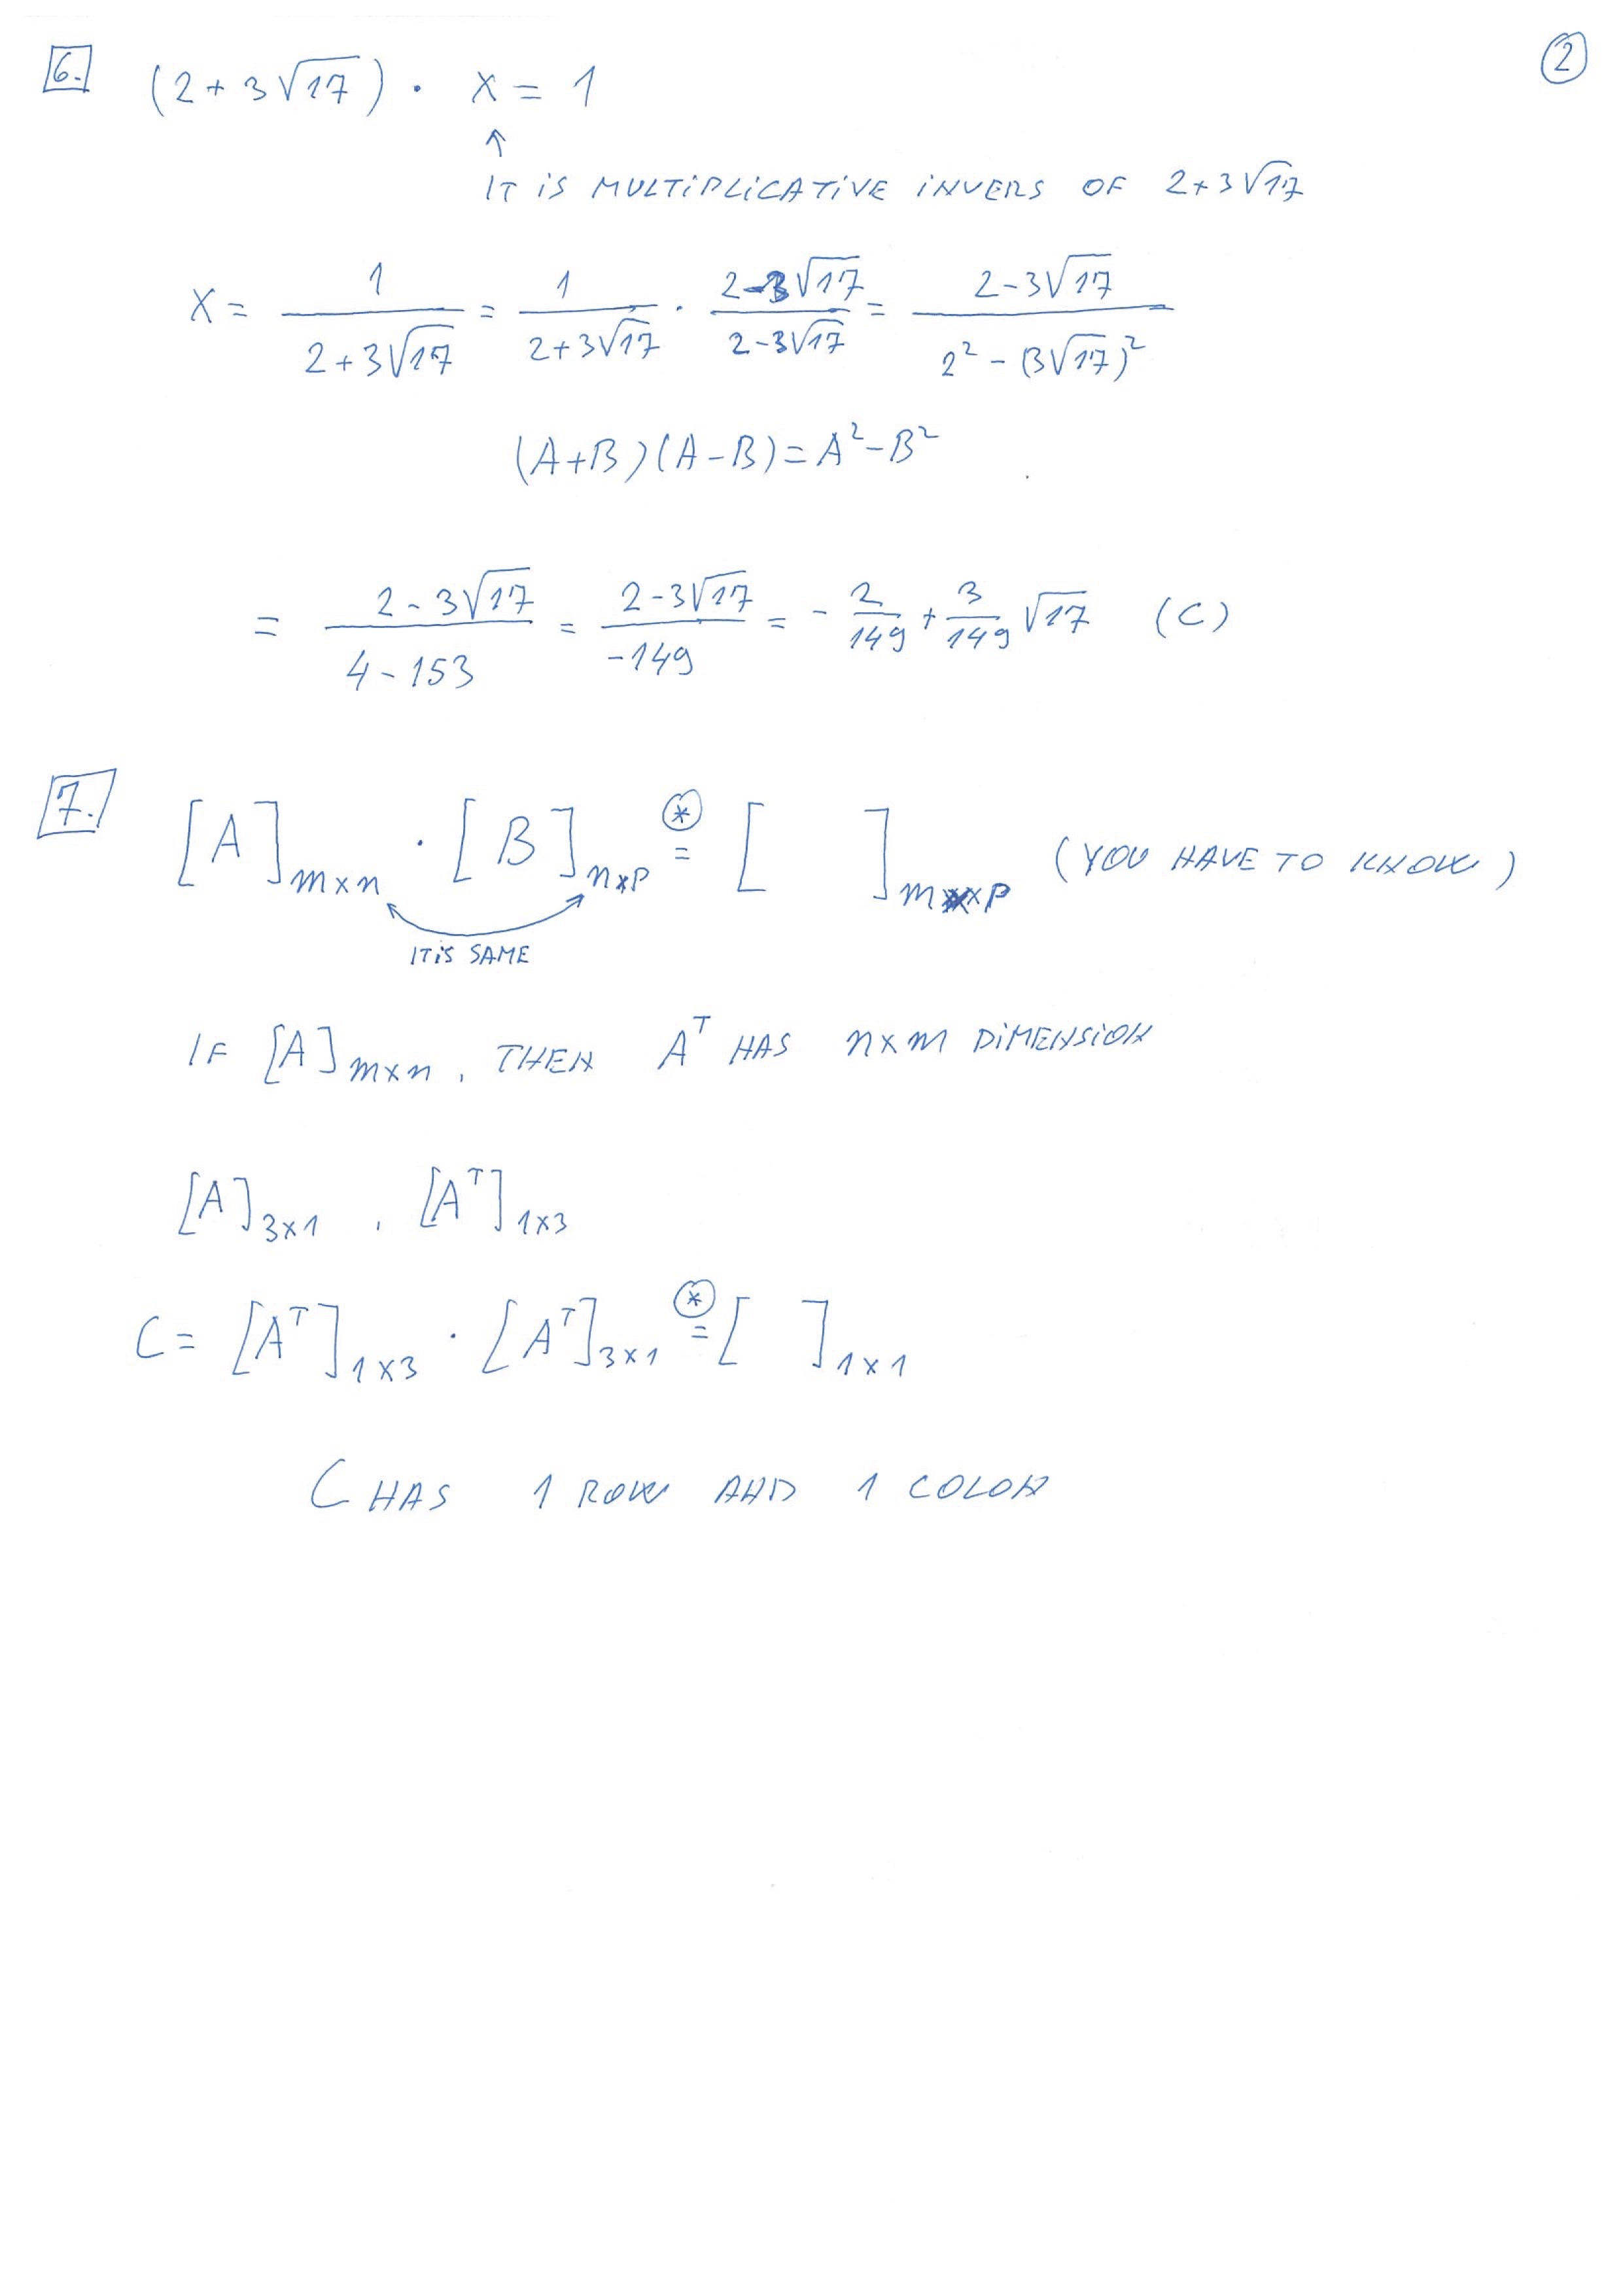 6. (2+3√17) · X = 1
2
↑
IT IS MULTIPLICATIVE INVERS OF 2+3√17
X = 1/(2+3√17) = 1/(2+3√17) · (2-3√17)/(2-3√17) = (2-3√17)/(2² - (3√17)²)
(A+B)(A-B)=A²-B²
= (2-3√17)/(4-153) = (2-3√17)/(-149) = - 2/149 + 3/149 √17 (C)
7. [A]m×n · [B]n×p (*)= [ ]m×p (YOU HAVE TO KNOW)
IT IS SAME
IF [A]m×n, THEN Aᵀ HAS n×m DIMENSION
[A]3×1 , [Aᵀ]1×3
C = [Aᵀ]1×3 · [Aᵀ]3×1 (*)= [ ]1×1
C HAS 1 ROW AND 1 COLON